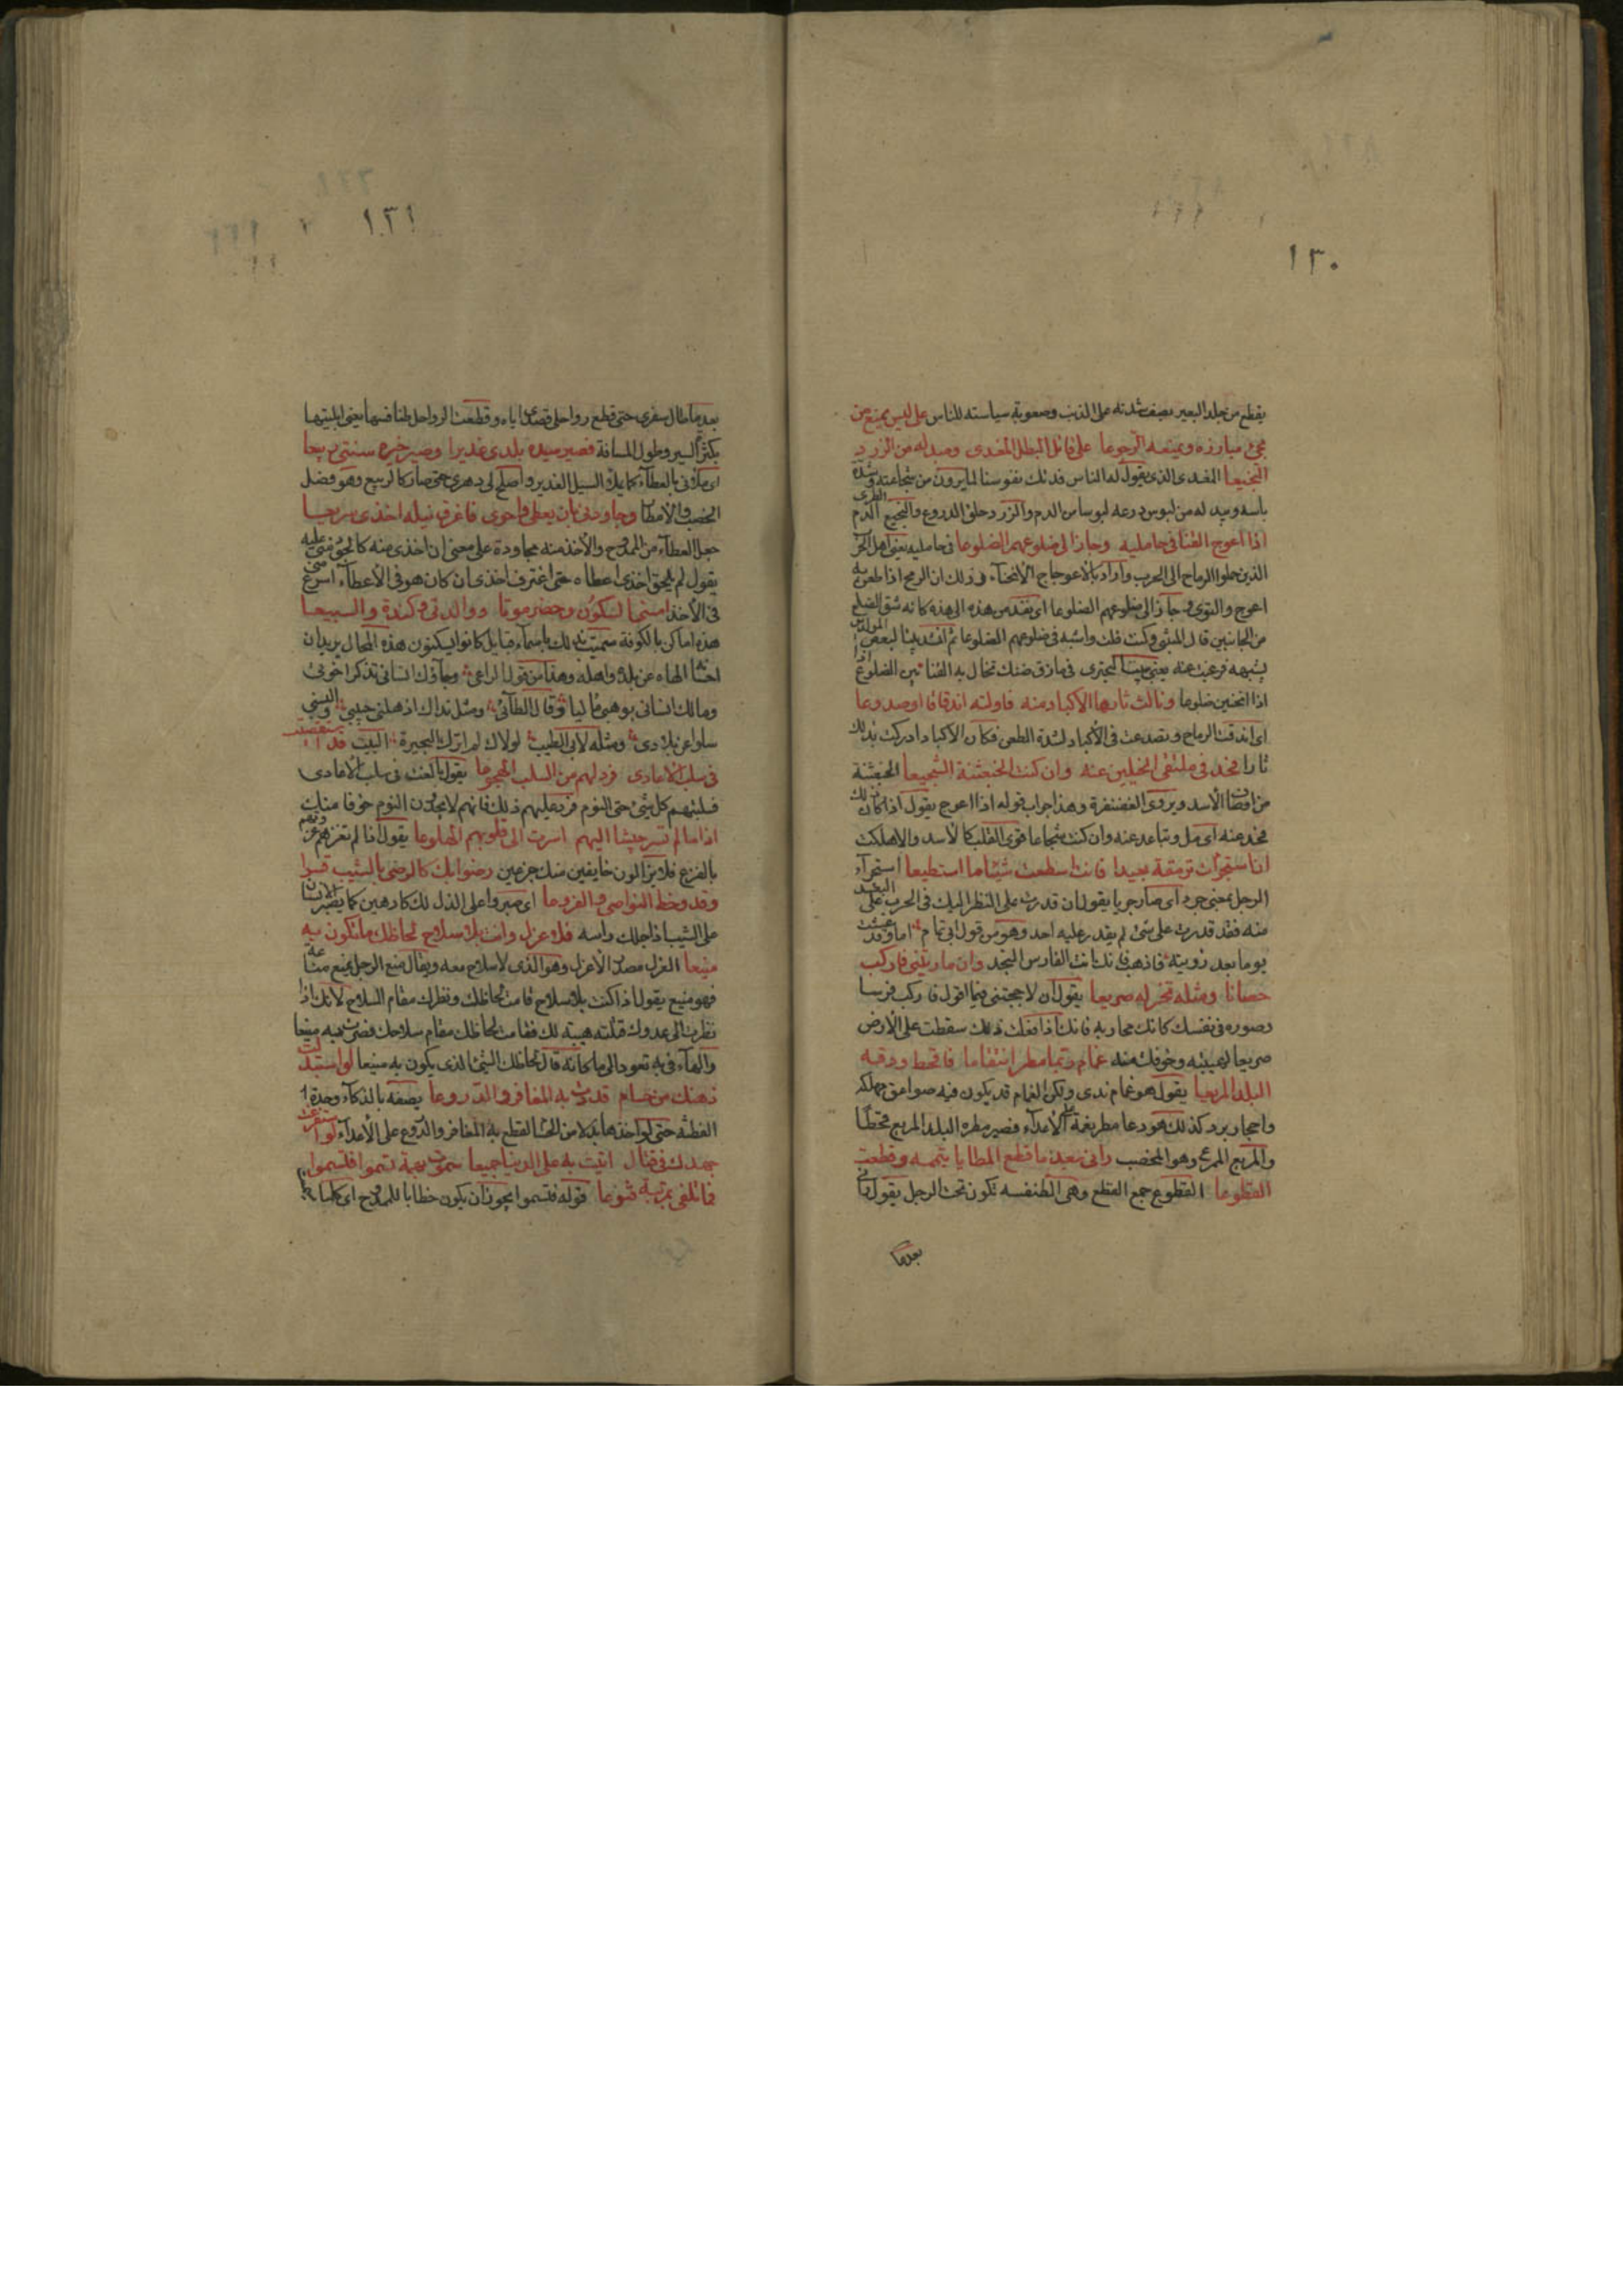 ١٣٠
يقطع من جلد البعير يصف شدته على الذنب وصعوبة سياسته للناس على ليس يمنع من
مجئ مبارزه ويمنعه الرجوعا على قاتل البطل المفدى ومبدله من الزرد
النجيعا المفدى الذى يقول له الناس فدتك نفوسنا لما يرون من شجاعته وشدة
باسه ومبدله من لبوس درعه لبوسا من الدم والزرد حلق الدروع والنجيع الدم الطرى
اذا اعوج القنا فى حامليه وجاز الى ضلوعهم الضلوعا فى حامليه يعنى اهل الحرب
الذين حملوا الرماح الى الحرب واراد بالاعوجاج الانحناء وذلك ان الرمح اذا طعن به
اعوج والتوى وجاز الى ضلوعهم الضلوعا اى نفذ من هذه الى هذه كانه شق الضلع
من الجانبين قال المتنبى وكنت قلت واشبه فى ضلوعهم الضلوعا ثم انشدت بيتا لبعض المولدين
يشبهه فرغبت عنه يعنى بيت البحترى فى مازق ضنك تخال به القنا بين الضلوع اذا
اذا انحنين ضلوعا ونالت ثارها الاكباد منه فاولته اندقاقا او صدوعا
اى اندقت الرماح وتصدعت فى الاكباد لشدة الطعن فكان الاكباد ادركت بذلك
ثارا فحد فى ملتقى الخيلين عنه وان كنت الخبعثنة الشجيعا الخبعثنة
من اوصاف الاسد ويروى الغضنفرة وهذا جواب قوله اذا اعوج يقول اذا كان ذلك
فحد عنه اى مل وتباعد عنه وان كنت شجاعا قوى القلب كالاسد والا هلكت
ان استجرات ترمقه بعيدا فانت اسطعت شيئا ما استطيعا استجراء
الرجل بمعنى جرد اى صار جريا يقول ان قدرت على النظر اليك فى الحرب على البعد
منه فقد قدرت على شئ لم يقدر عليه احد وهو من قول ابى تمام اما وقد عيشت
يوما بعد رويته فاذهب فانك انت الفارس النجد وان ماريتنى فاركب
حصانا ومثله تخر له صريعا يقول ان لاججتنى فيما اقول فاركب فرسا
وصوره فى نفسك كانك محاربه فانك اذا فعلت ذلك سقطت على الارض
صريعا لهيبته وخوفك منه غمام ربما مطر انتقاما فاقحط ودقه
البلد المريعا يقول هو غمام ندى ولكن الغمام قد يكون فيه صواعق مهلكة
واحجار برد كذلك هو ربما مطر نقمة على الاعداء فصير مطره البلد المريع مقحطا
والمريع الممرع وهو المخصب رانى بعد ما قطع المطايا تيممه وقطعت
القطوعا القطوع جمع القطع وهى الطنفسه تكون تحت الرجل يقول رانى
بعد ما
١٣١
بعد ما طال سفرى حتى قطع رواحلى قصدى اياه وقطعت الرواحل طنافسها يعنى ابليتها
بكثرة السير وطول المسافة فصير سيله بلدى غديرا وصير خيره سنتى ربيعا
اى ملانى بالعطاء كما يملأ السيل الغدير واصلح لى دهرى حتى صار كالربيع وهو فصل
الخصب والامطار وجاودنى بان يعطى واحوى فاغرق نيله اخذى سريعا
جعل العطاء من الممدوح والاخذ منه مجاودة على معنى ان اخذى منه كالجود منى عليه
يقول لم يلحق اخذى اعطاءه حتى اغترف اخذى ان كان هو فى الاعطاء اسرع منى
فى الاخذ امنسى السكون وحضرموتا ووالدتى وكندة والسبيعا
هذه اماكن بالكوفة سميت بذلك باسماء قبايل كانوا يسكنون هذه المحال يريد ان
احسانه الهاه عن بلده واهله وهذا من قول الراعى وجاوزك انسانى تذكر اخوتى
ومالك انسانى بوهبين ماليا وقال الطائى ومثل نداك اذهلنى حبيبى والبسنى
سلوا عن بلادى ومثله لابى الطيب لولاك لم اترك البحيرة البيت قد استقصيت
فى سلب الاعادى فرد لهم من السلب الهجوعا يقول بالغت فى سلب الاعادى
فسلبتهم كل شئ حتى النوم فرد عليهم ذلك فانهم لا يجدون النوم خوفا منك
اذا ما لم تسر جيشا اليهم اسرت الى قلوبهم الهلوعا يقول اذا لم تغزهم غزوتهم
بالفزع فلا يزالون خايفين منك جزعين رضوا بك كالرضى بالشيب قسرا
وقد وخط النواصى والفروعا اى صبروا على الذل لك كارهين كما يصبر الانسان
على الشيب اذا جلل راسه فلا عزل وانت بلا سلاح لحاظك ما تكون به
منيعا العزل مصدر الاعزل وهو الذى لا سلاح معه ويقال منع الرجل يمنع مناعة
فهو منيع يقول اذا كنت بلا سلاح قامت لحاظك ونظرك مقام السلاح لانك اذا
نظرت الى عدوك قتلته هيبته لك فقامت لحاظك مقام سلاحك فصرت به منيعا
والهاء فى به تعود الى ما كانه قال لحاظك الشئ الذى يكون به منيعا لو استبدلت
ذهنك من حسام قددت به المغافر والدروعا يصفه بالذكاء وحدة
الفطنة حتى لو اخذها بدلا من الحسام لقطع به المغافر والدروع على الاعداء لو استفرغت
جهدك فى قتال اتيت به على الدنيا جميعا سموت بهمة تسمو فتسموا
فما تلفى بمرتبة قنوعا قوله فتسموا يجوز ان يكون خطابا للممدوح اى كلما